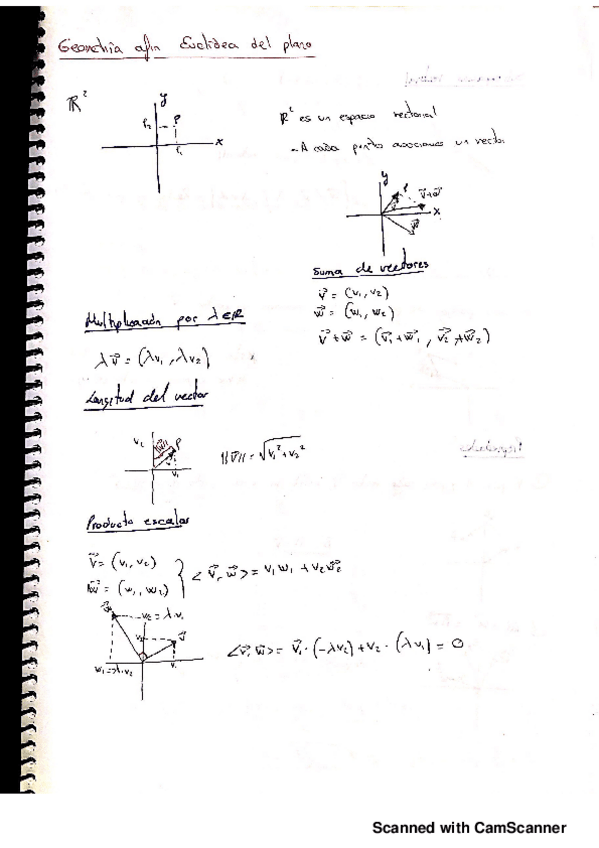 Geometría afín Euclídea del plano
ℝ²
y
P₂ P
P₁ x
ℝ² es un espacio vectorial
- A cada punto asociamos un vector
y
v⃗+w⃗
x
w⃗
Suma de vectores
v⃗ = (v₁, v₂)
w⃗ = (w₁, w₂)
v⃗ + w⃗ = (v⃗₁ + w⃗₁, v⃗₂ + w⃗₂)
Multiplicación por λ ∈ ℝ
λv⃗ = (λv₁, λv₂)
Longitud del vector
v₂ ||v⃗|| P
v⃗
v₁
||v⃗|| = √v₁² + v₂²
Producto escalar
v⃗ = (v₁, v₂)
w⃗ = (w₁, w₂)
} <v⃗, w⃗> = v₁w₁ + v₂w⃗₂
w⃗ w₂ = λ·v₁
v₂ v⃗
v₁
<v⃗, w⃗> = v⃗₁·(-λv₂) + v₂·(λv₁) = 0
Scanned with CamScanner